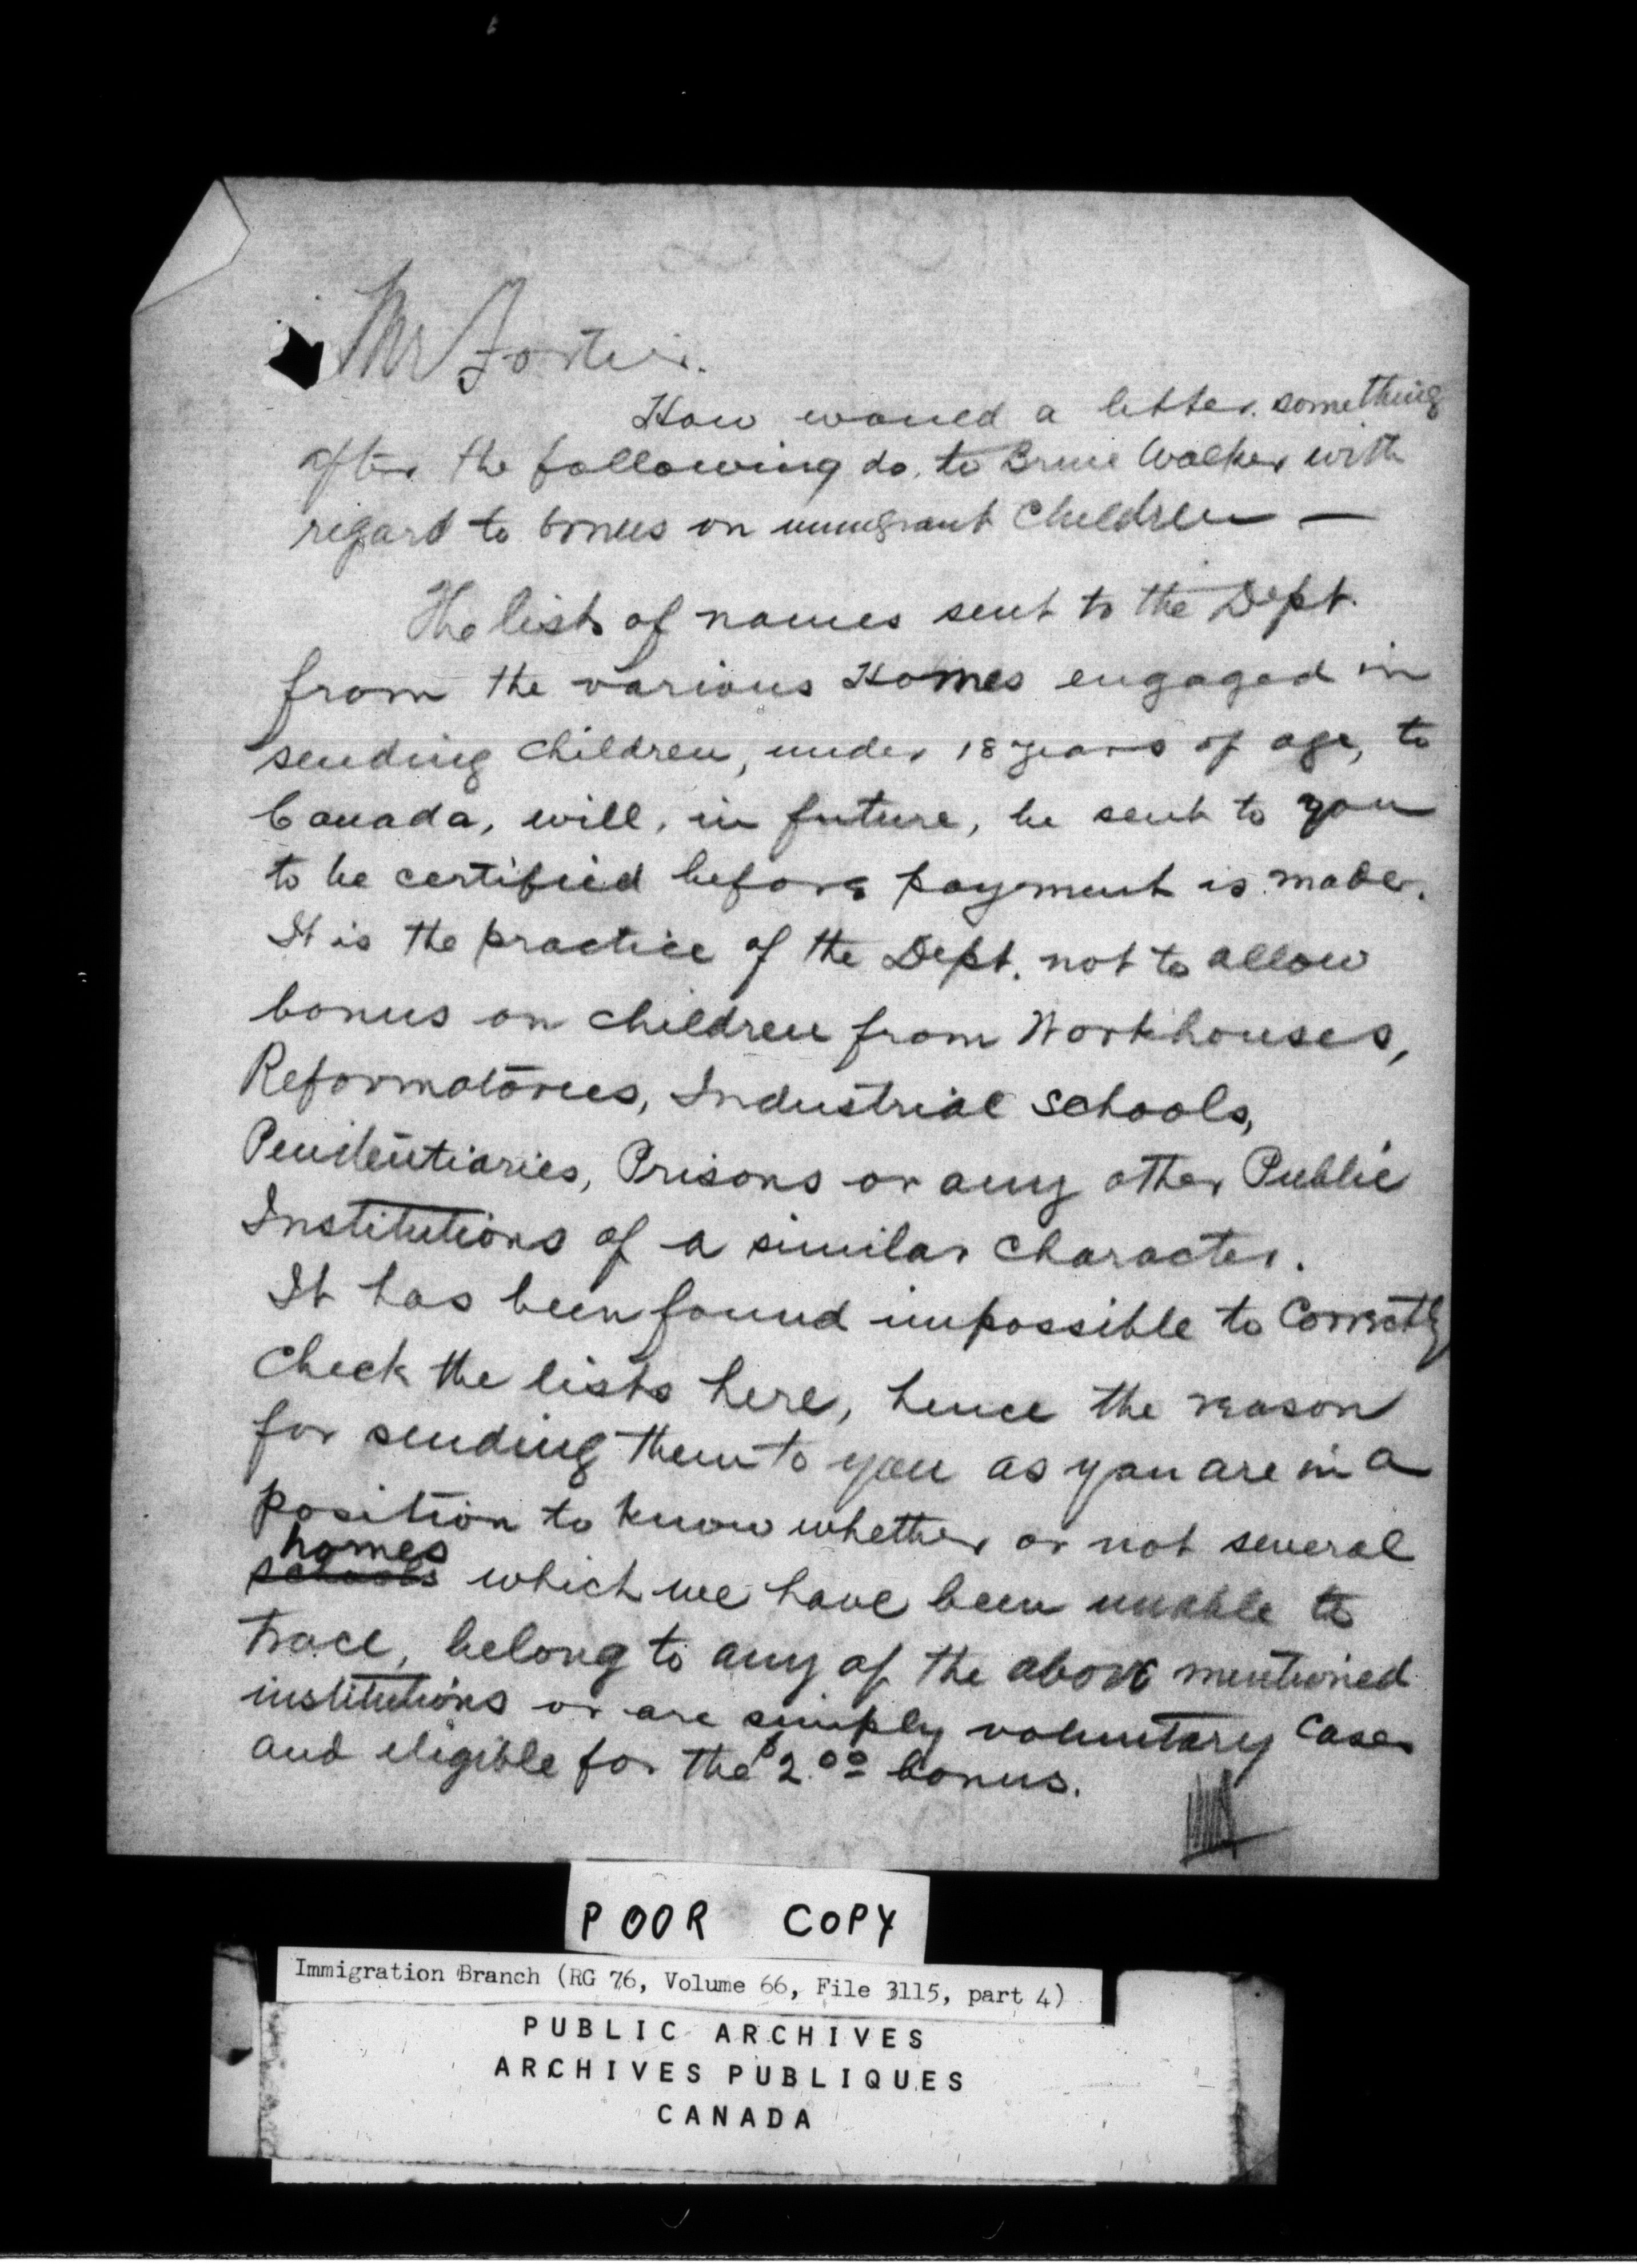 Mr Fortier.
How would a letter something
after the following do, to Bruce Walker with
regard to bonus on immigrant children —
The lists of names sent to the Dept.
from the various Homes engaged in
sending children, under 18 years of age, to
Canada, will, in future, be sent to you
to be certified before payment is made.
It is the practice of the Dept. not to allow
bonus on children from Workhouses,
Reformatories, Industrial schools,
Penitentiaries, Prisons or any other Public
Institutions of a similar character.
It has been found impossible to Correctly
check the lists here, hence the reason
for sending them to you as you are in a
position to know whether or not several
homes
schools which we have been unable to
trace, belong to any of the above mentioned
institutions or are simply voluntary cases
and eligible for the $2.00 bonus.
POOR COPY
Immigration Branch (RG 76, Volume 66, File 3115, part 4)
PUBLIC ARCHIVES
ARCHIVES PUBLIQUES
CANADA